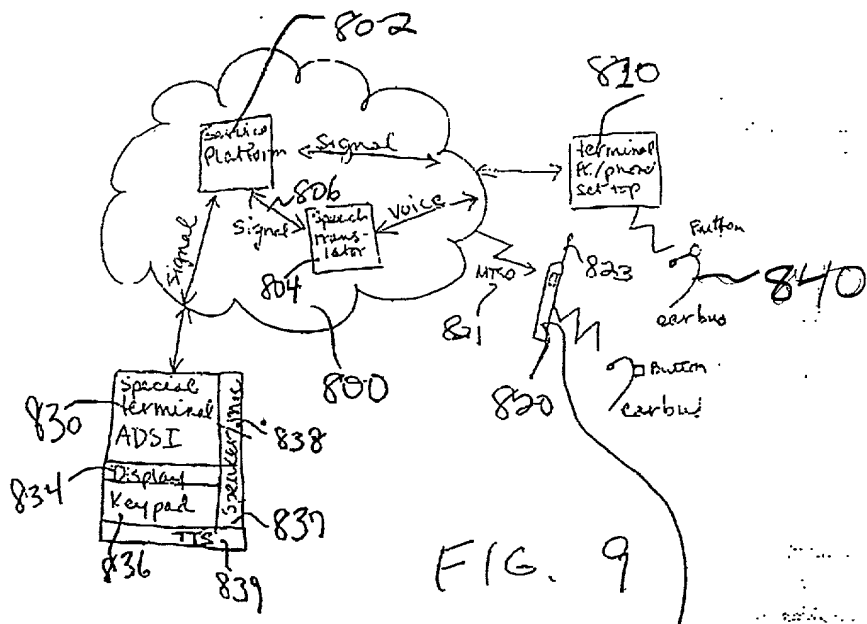 802
Service
Platform
Signal
806
Signal
Speech
Trans-
lator
804
Voice
Signal
800
810
terminal
PC/phone
set top
Button
840
earbud
MTSO
821
823
820
Button
earbud
Special
terminal
ADSI
830
Display
834
Keypad
836
Speaker/mic
838
837
TTS
839
FIG. 9